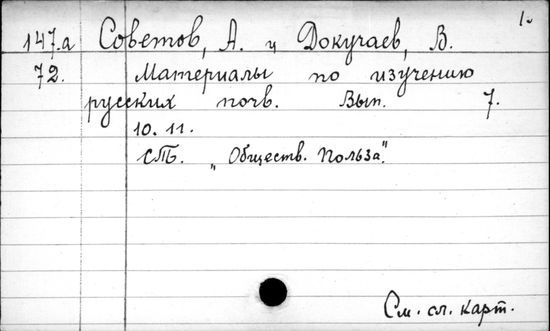 1.
147.а Советов, А. и Докучаев, В.
72. Материалы по изучению
русских почв. Вып. 7.
10. 11.
СПБ. „Обществ. Польза".
См. сл. карт.